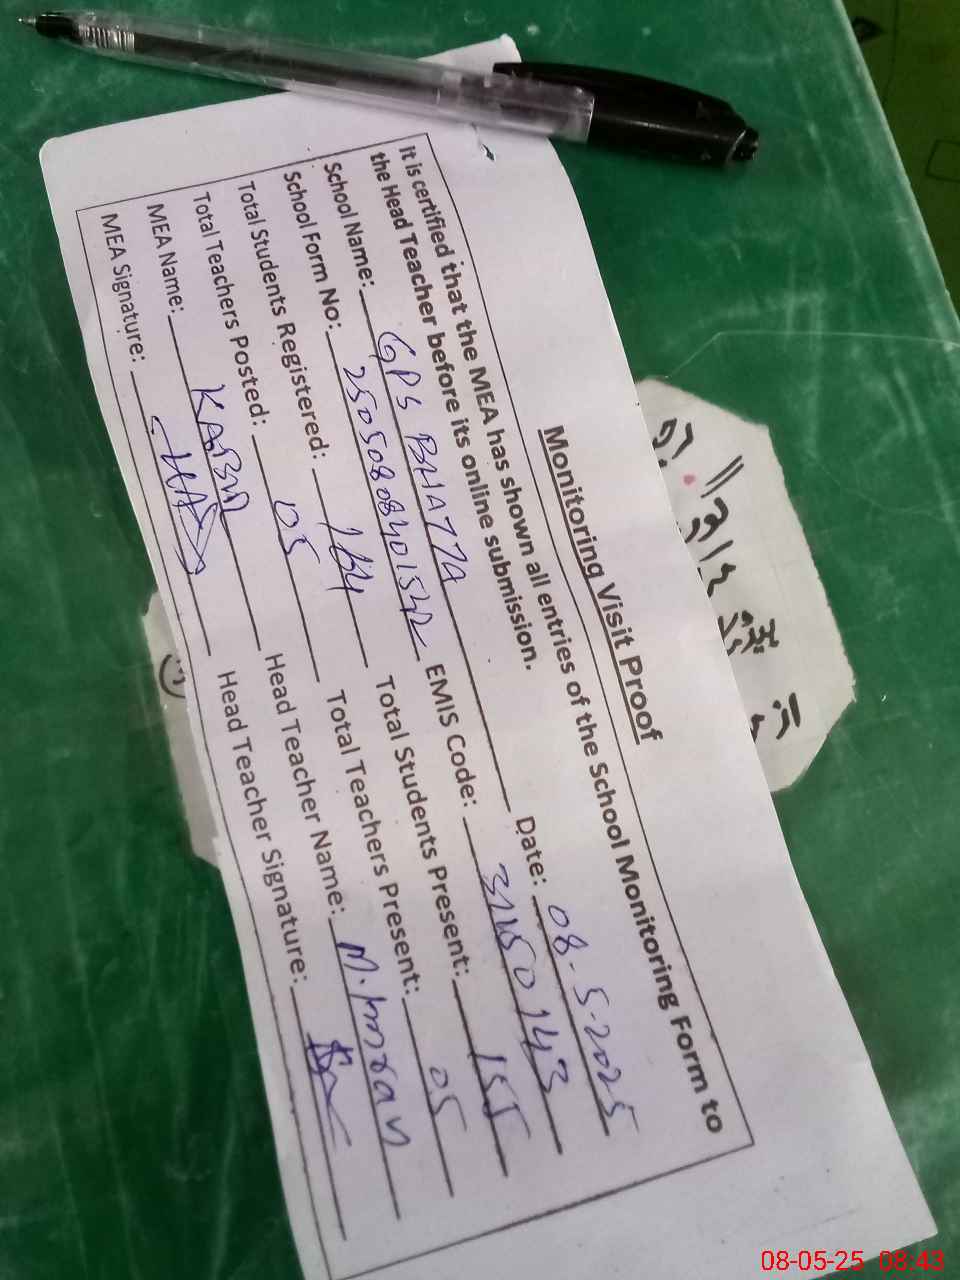 Monitoring Visit Proof
It is certified that the MEA has shown all entries of the School Monitoring Form to
the Head Teacher before its online submission.
School Name: GPS BHATTA Date: 08-5-2025
School Form No: 25050808401542 EMIS Code: 31250143
Total Students Registered: 164 Total Students Present: 155
Total Teachers Posted: 05 Total Teachers Present: 05
MEA Name: KABIR Head Teacher Name: M. Imran
MEA Signature: Head Teacher Signature:
08-05-25 08:43